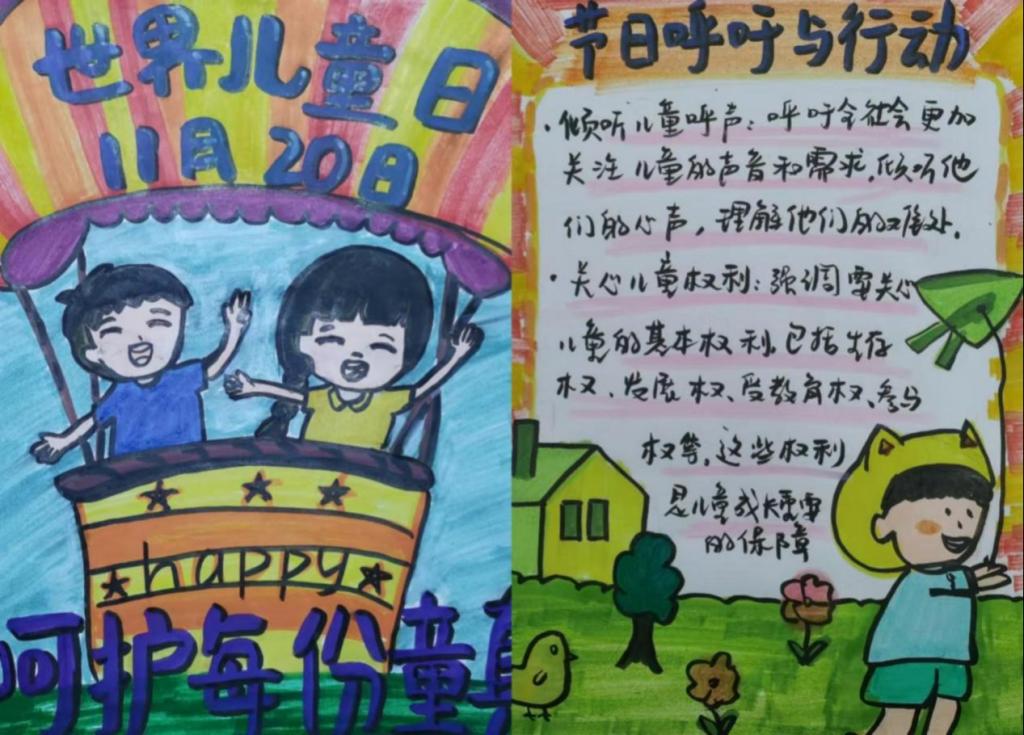 世界儿童日
11月20日
happy
呵护每份童真
节日呼吁与行动
·倾听儿童呼声:呼吁全社会更加
关注儿童的声音和需求,倾听他
们的心声,理解他们的难处.
·关心儿童权利:强调要关心
儿童的基本权利,包括生存
权、发展权、受教育权、参与
权等,这些权利
是儿童成长重要
的保障